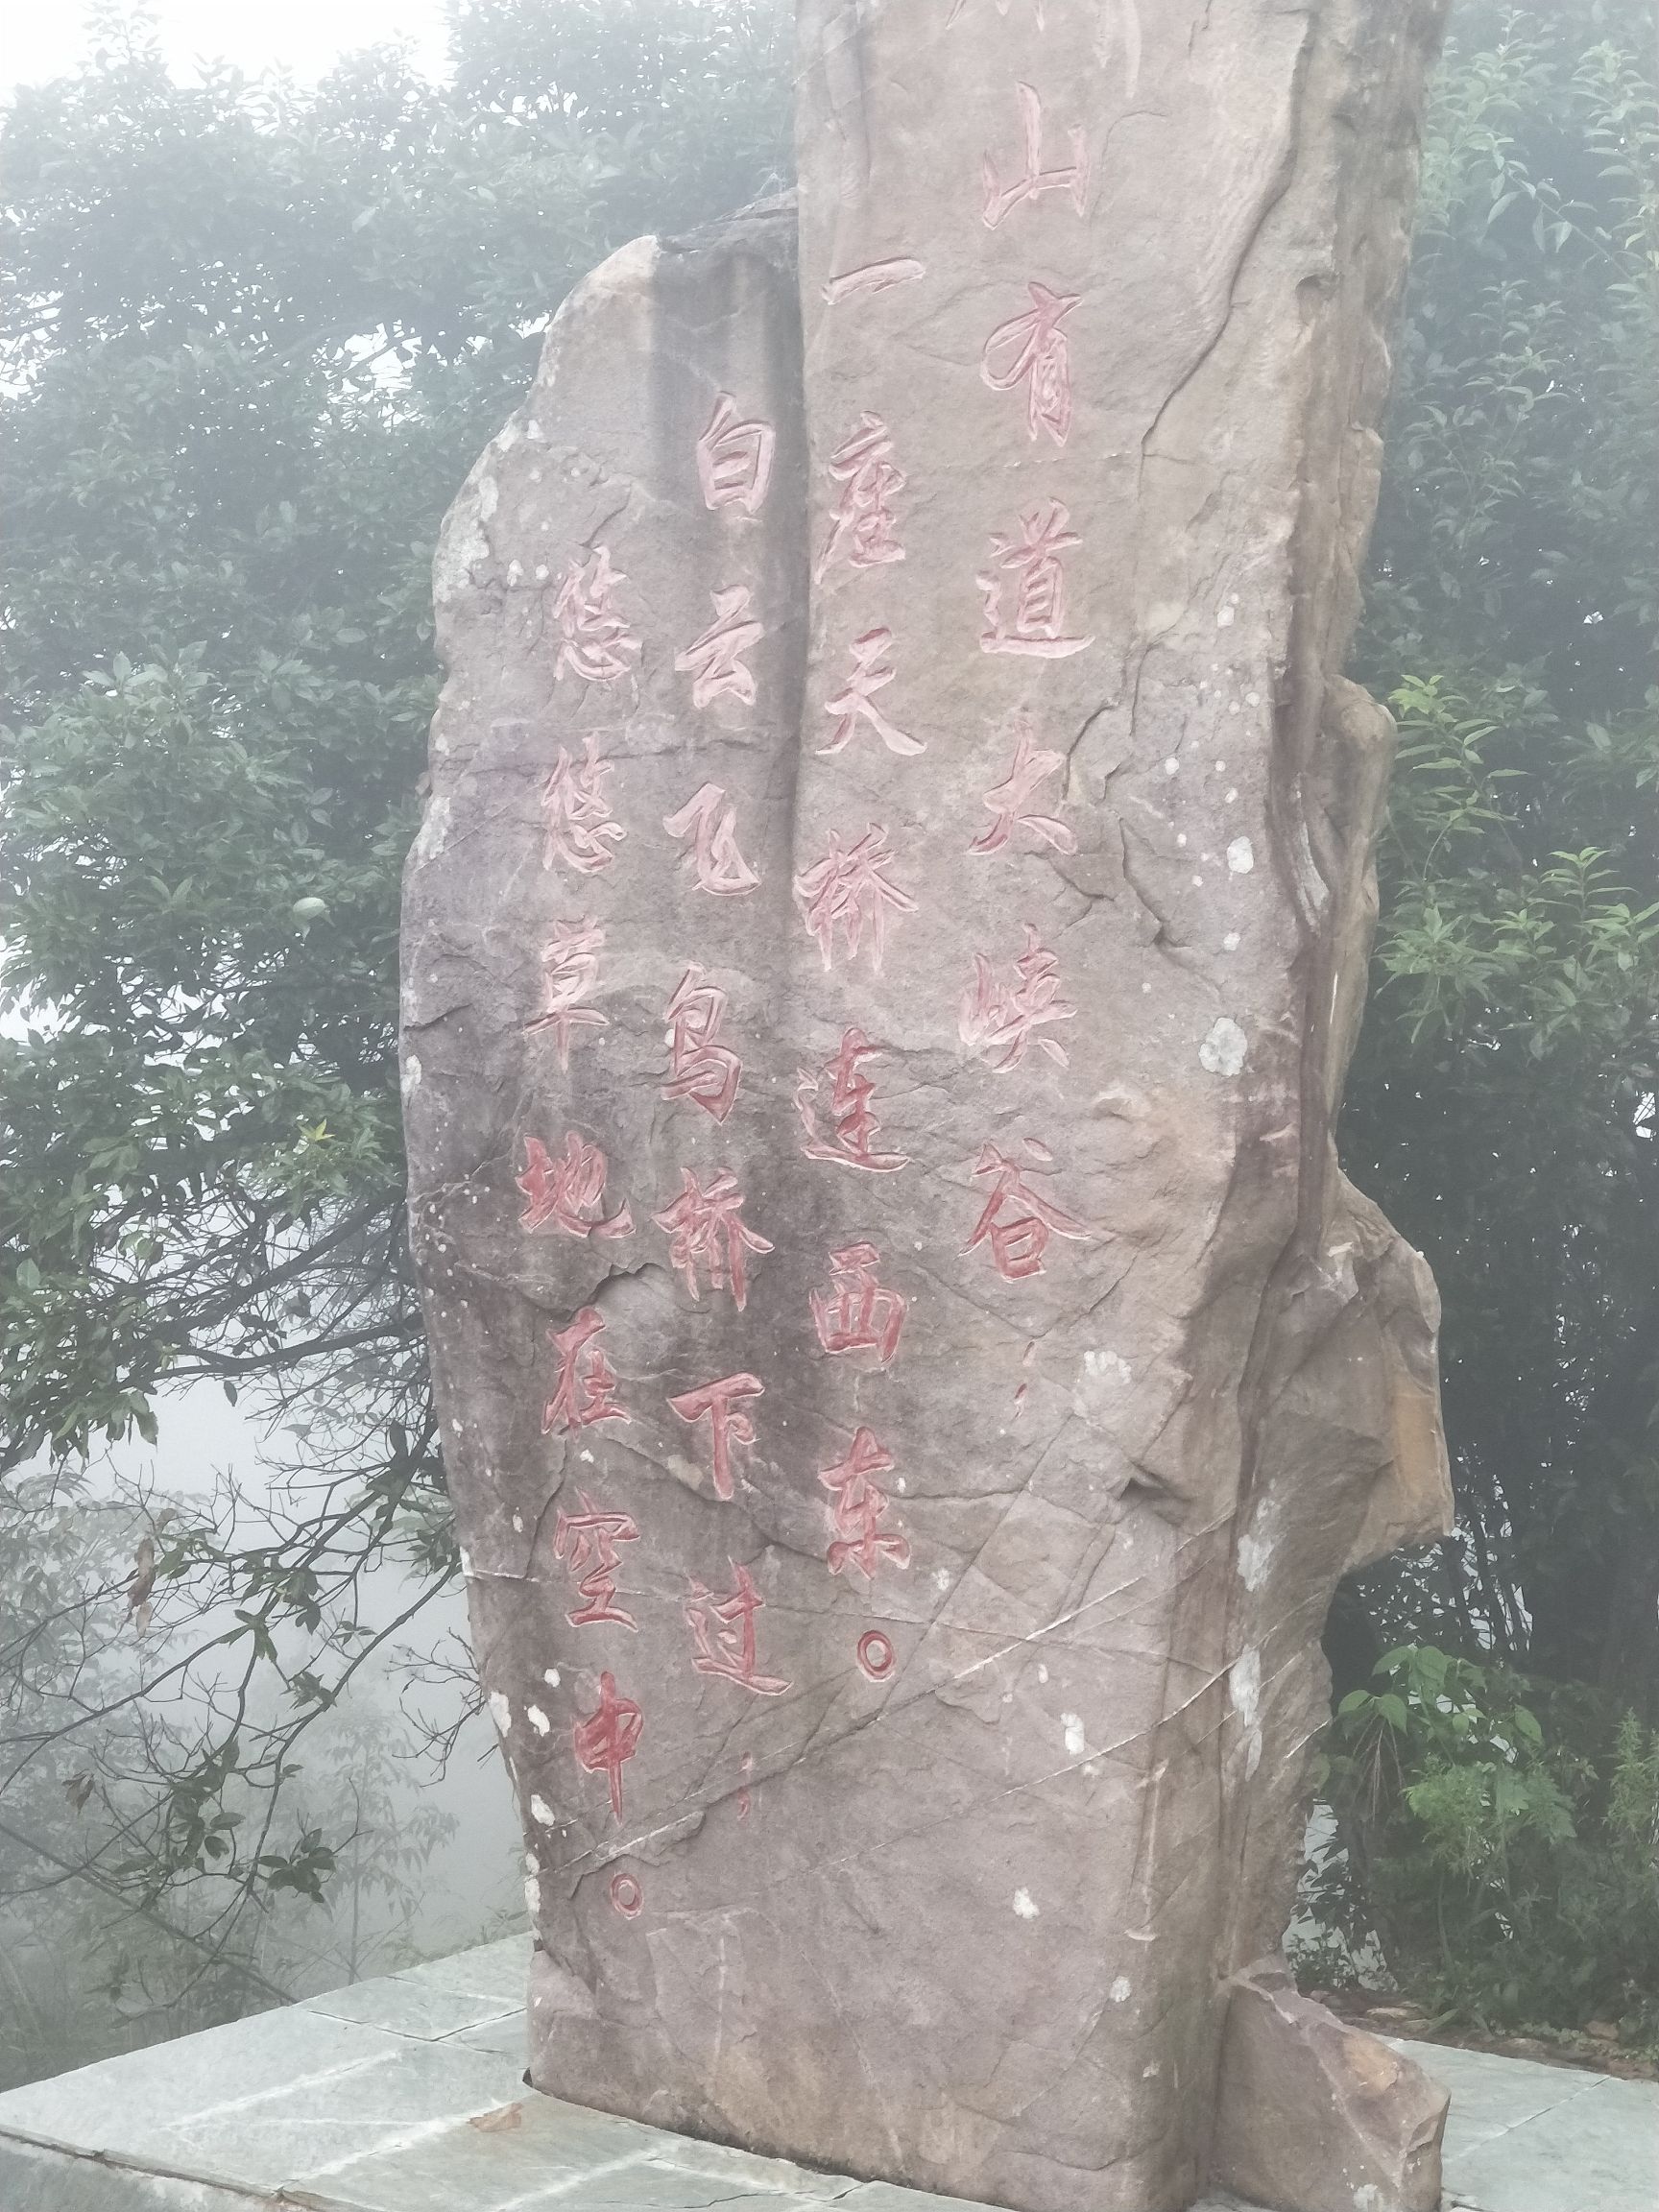 山有道大峡谷，
一座天桥连西东。
白云飞鸟桥下过，
悠悠草地在空中。